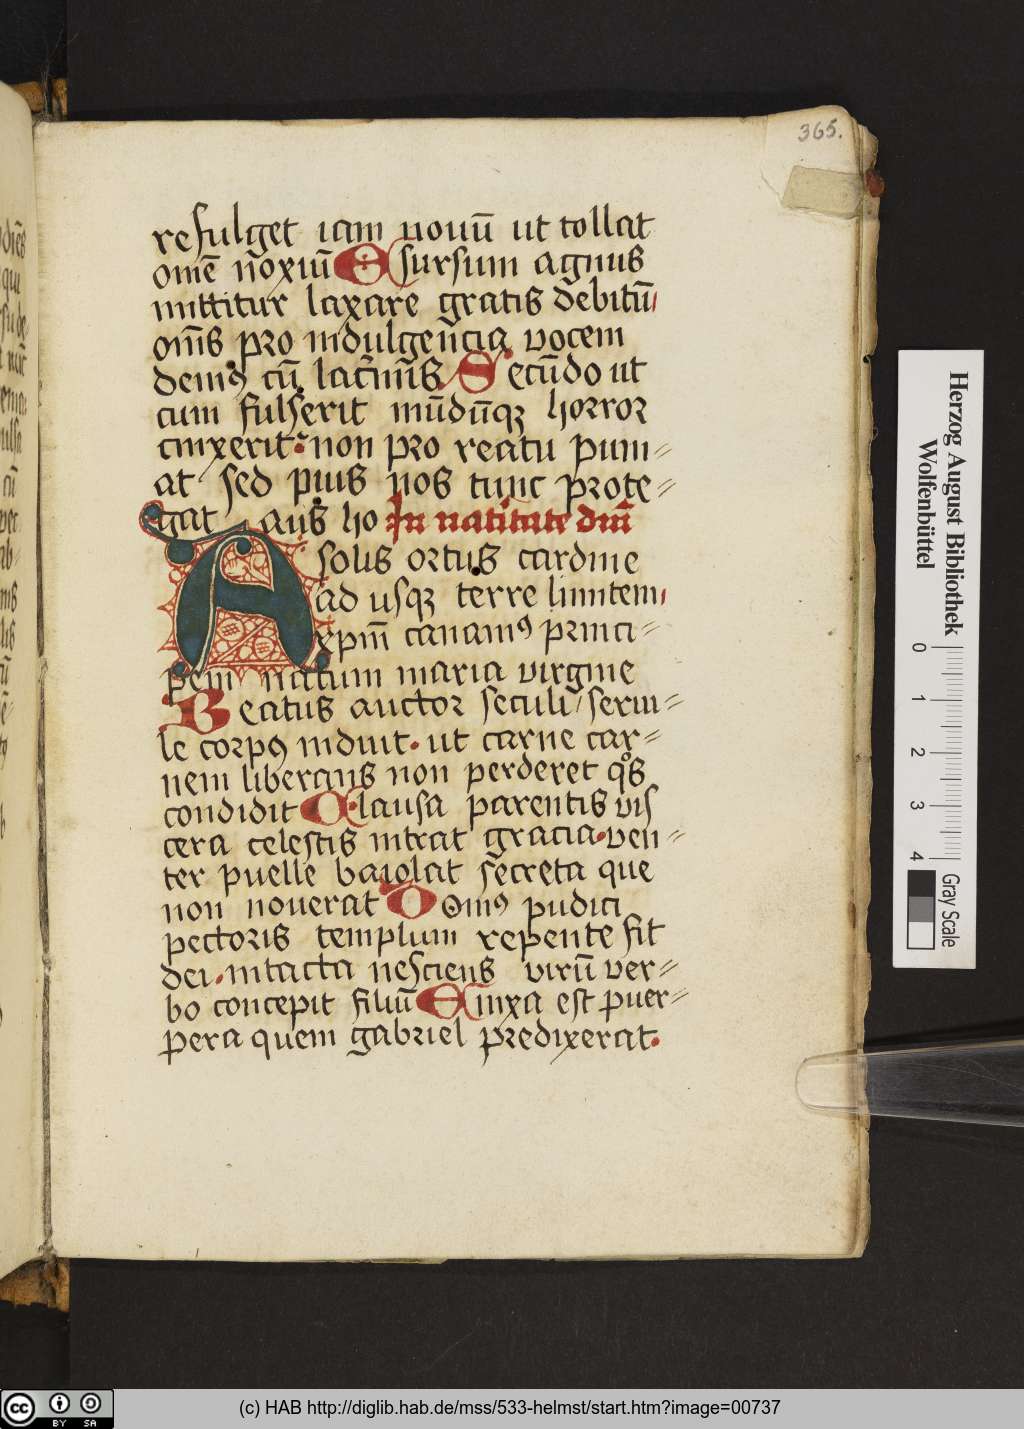 365.
refulget iam nouū ut tollat
om̄e n̄oxiū E sursum agnus
mittitur laxare gratis debitū
om̄s pro indulgencia vocem
demꝰ cū lacrīmis Secūdo ut
cum fulserit mūdūqꝫ horror
cinxerit non pro reatu puni⸗
at sed pius nos tunc prote⸗
gat aus ho In natiuitate dn̄i
A solis ortus cardine
ad usqꝫ terre limitem
xp̄m canamꝰ princi⸗
pem natum maria virgine
Beatus auctor seculi serui⸗
le corpꝰ induit. ut carne car⸗
nem liberans non perderet qͦs
condidit Clausa parentis vis
cera celestis intrat gracia. ven⸗
ter puelle baiolat secreta que
non nouerat Domꝰ pudici
pectoris templum repente fit
dei. intacta nesciens virū ver⸗
bo concepit filiū Enixa est puer⸗
pera quem gabriel predixerat.
Herzog August Bibliothek
Wolfenbüttel
0 1 2 3 4
Gray Scale
cc BY SA
(c) HAB http://diglib.hab.de/mss/533-helmst/start.htm?image=00737